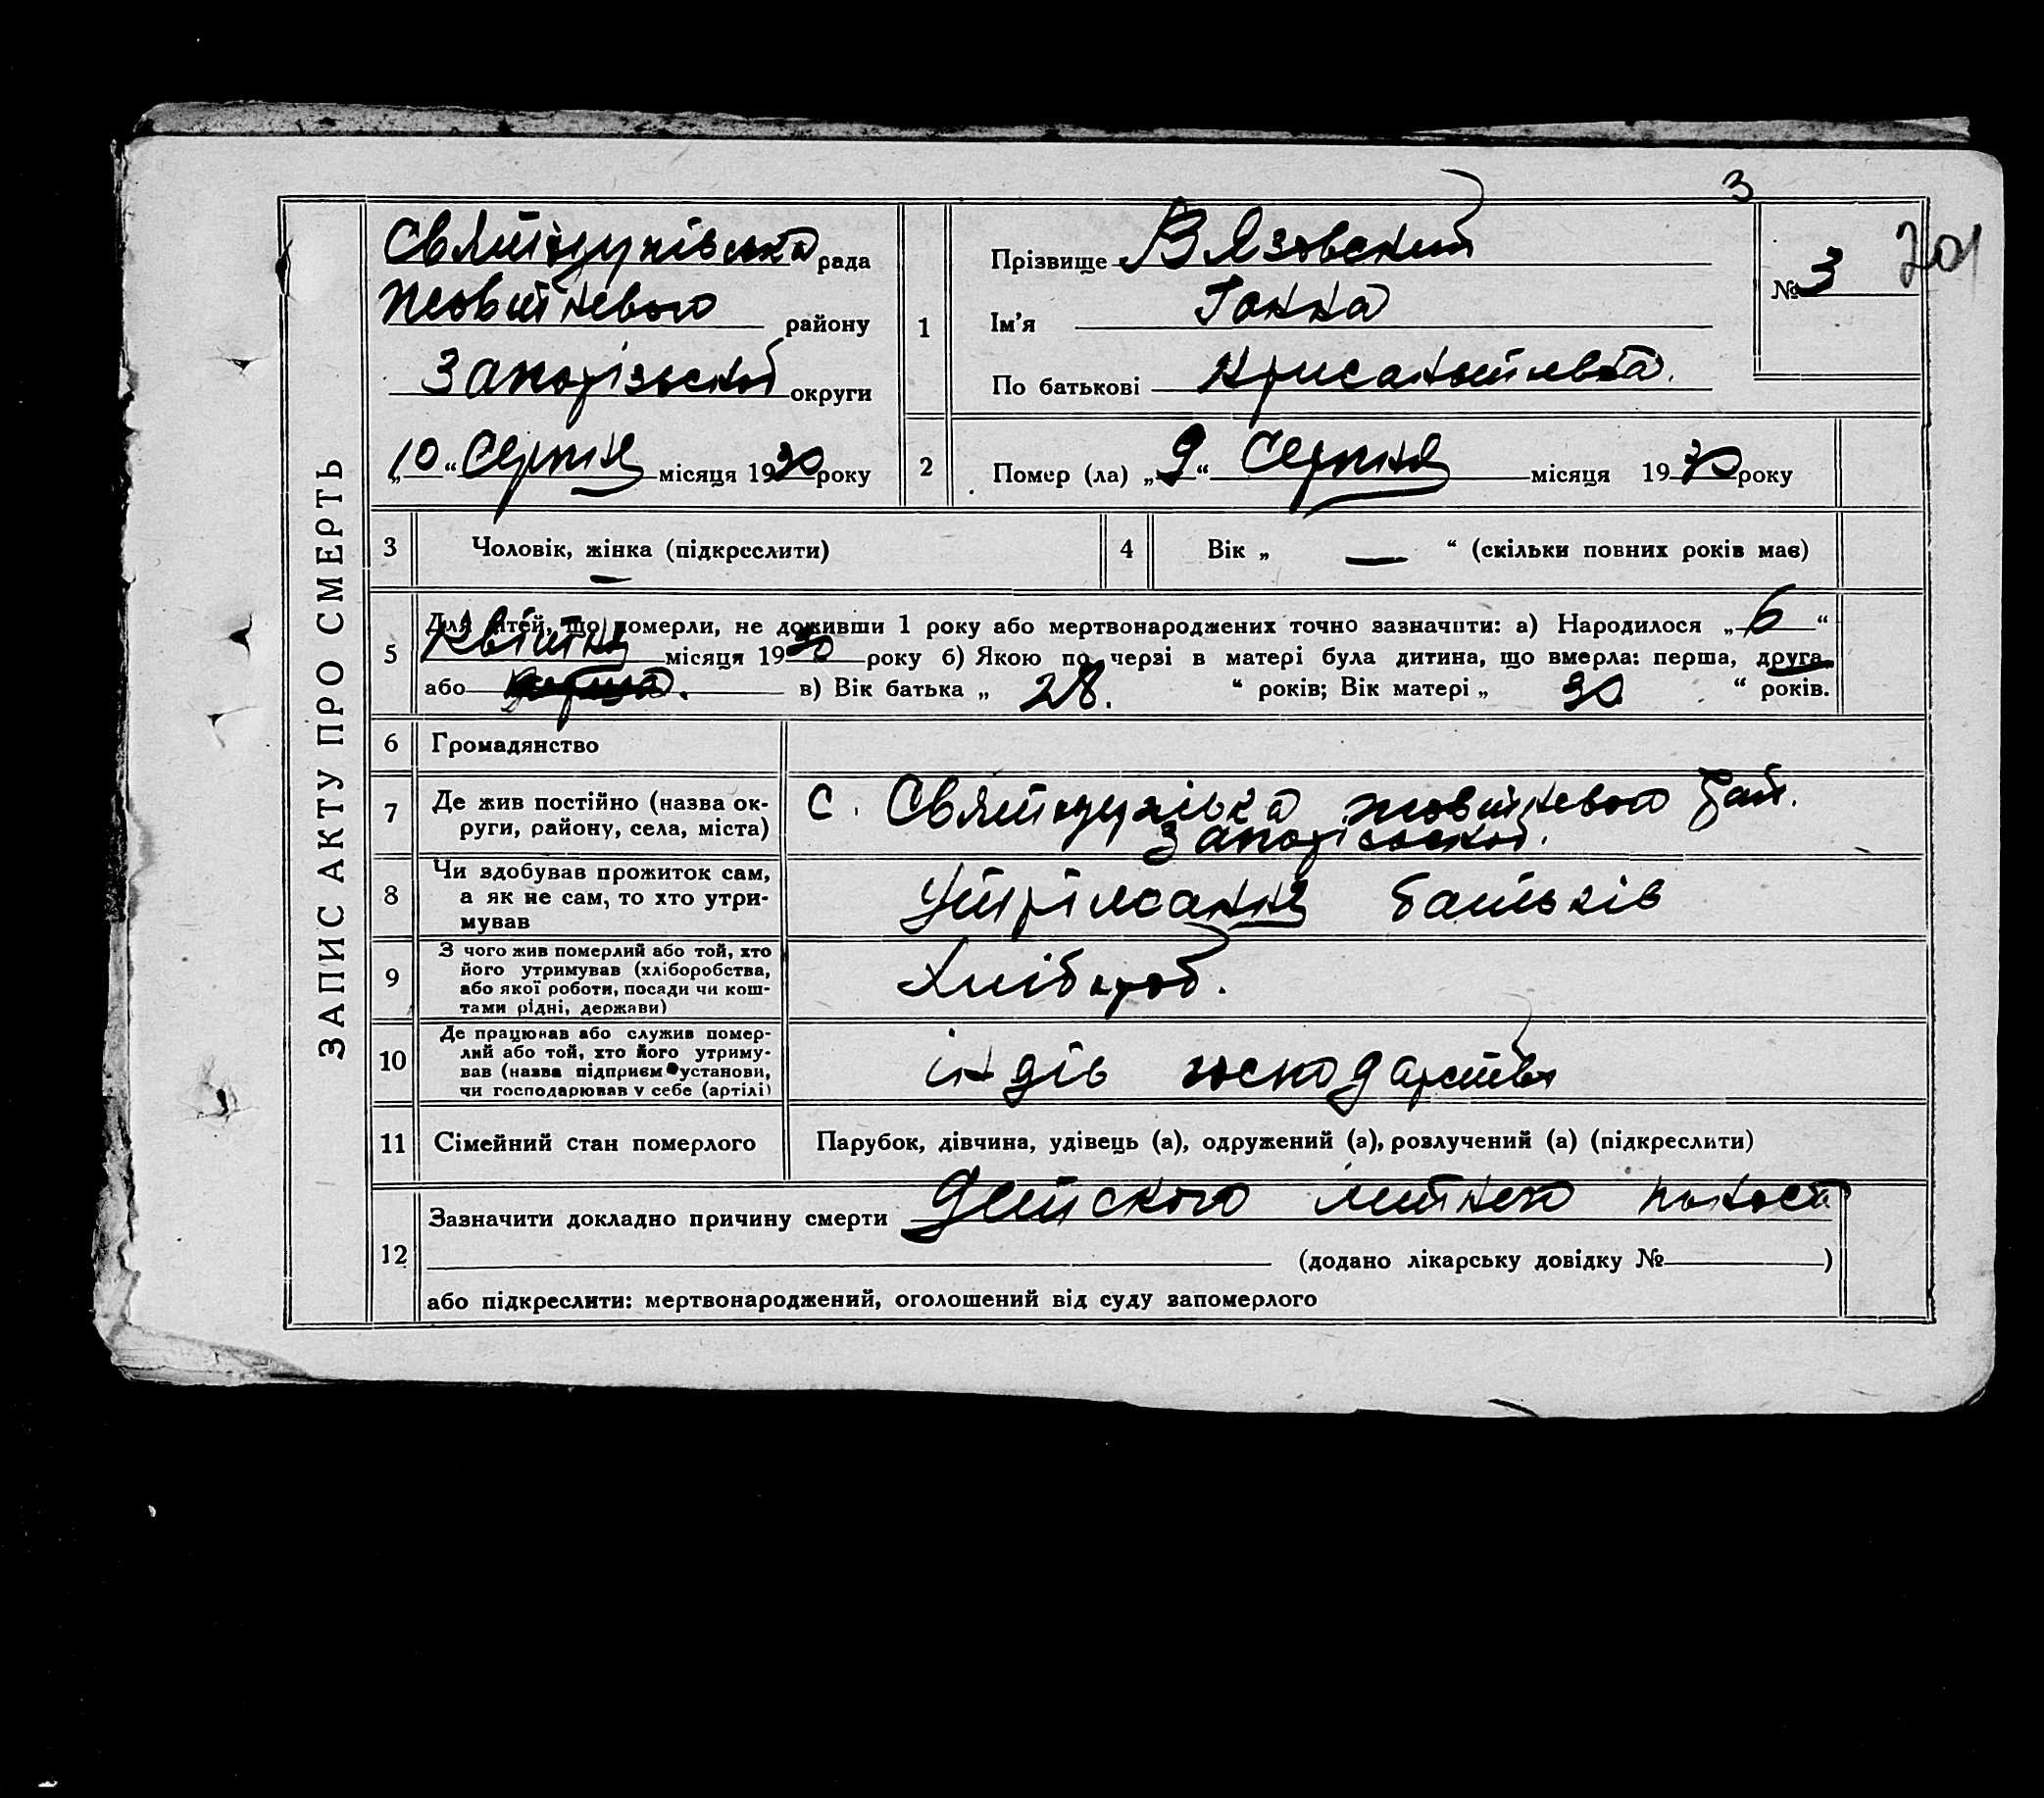 3
201
ЗАПИС АКТУ ПРО СМЕРТЬ
рада
Жовтневого району
Запорізської округи
„10“ Серпня місяця 1930 року
1
Прізвище Вязовский
Ім'я Ганна
По батькові
№ 3
2
Помер (ла) „9“ Серпня місяця 1930 року
3 Чоловік, жінка (підкреслити)
4 Вік „ — “ (скільки повних років має)
5 Для дітей, що померли, не доживши 1 року або мертвонароджених точно зазначити: а) Народилося „6“
Квітня місяця 1930 року б) Якою по черзі в матері була дитина, що вмерла: перша, друга
або в) Вік батька „ 28. “ років; Вік матері „ 30 “ років.
6 Громадянство
7 Де жив постійно (назва ок-
руги, району, села, міста)
с. Жовтневого Рай.
Запорізської.
8 Чи здобував прожиток сам,
а як не сам, то хто утри-
мував
Утрімання батьків
9 З чого жив померлий або той, хто
його утримував (хліборобства,
або якої роботи, посади чи кош-
тами рідні, держави)
Хлібороб.
10 Де працював або служив помер-
лий або той, хто його утриму-
вав (назва підприєм установи,
чи господарював у себе (артілі)
індів господарство
11 Сімейний стан померлого
Парубок, дівчина, удівець (а), одружений (а), розлучений (а) (підкреслити)
12 Зазначити докладно причину смерти Детского летнего поноса
(додано лікарську довідку № )
або підкреслити: мертвонароджений, оголошений від суду запомерлого